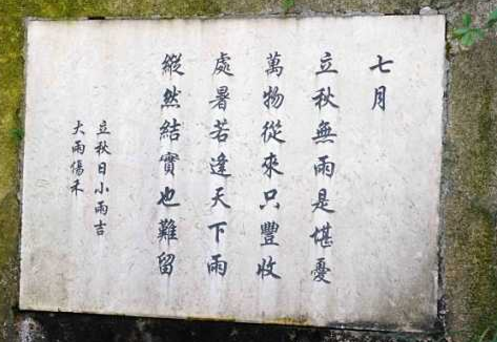 七月
立秋無雨是堪憂
萬物從來只豐收
處暑若逢天下雨
縱然結實也難留
立秋日小雨吉
大雨傷禾